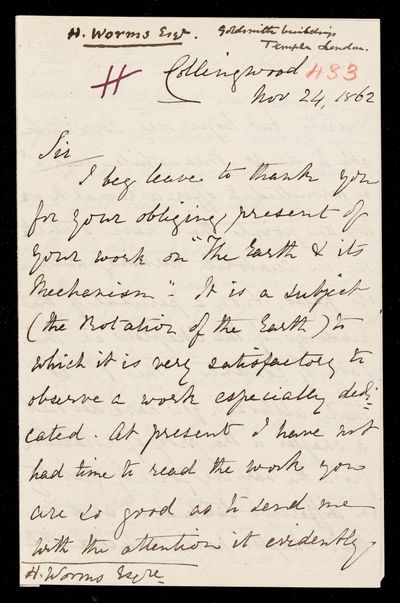 H. Worms Esqr. Goldsmiths buildings
Temple London.
H Collingwood 433
Nov 24, 1862
Sir
I beg leave to thank you
for your obliging present of
your work on "The Earth & its
Mechanism". It is a subject
(the Rotation of the Earth) to
which it is very satisfactory to
observe a work especially dedi=
cated. At present I have not
had time to read the work you
are so good as to send me
with the attention it evidently
H. Worms Esqre